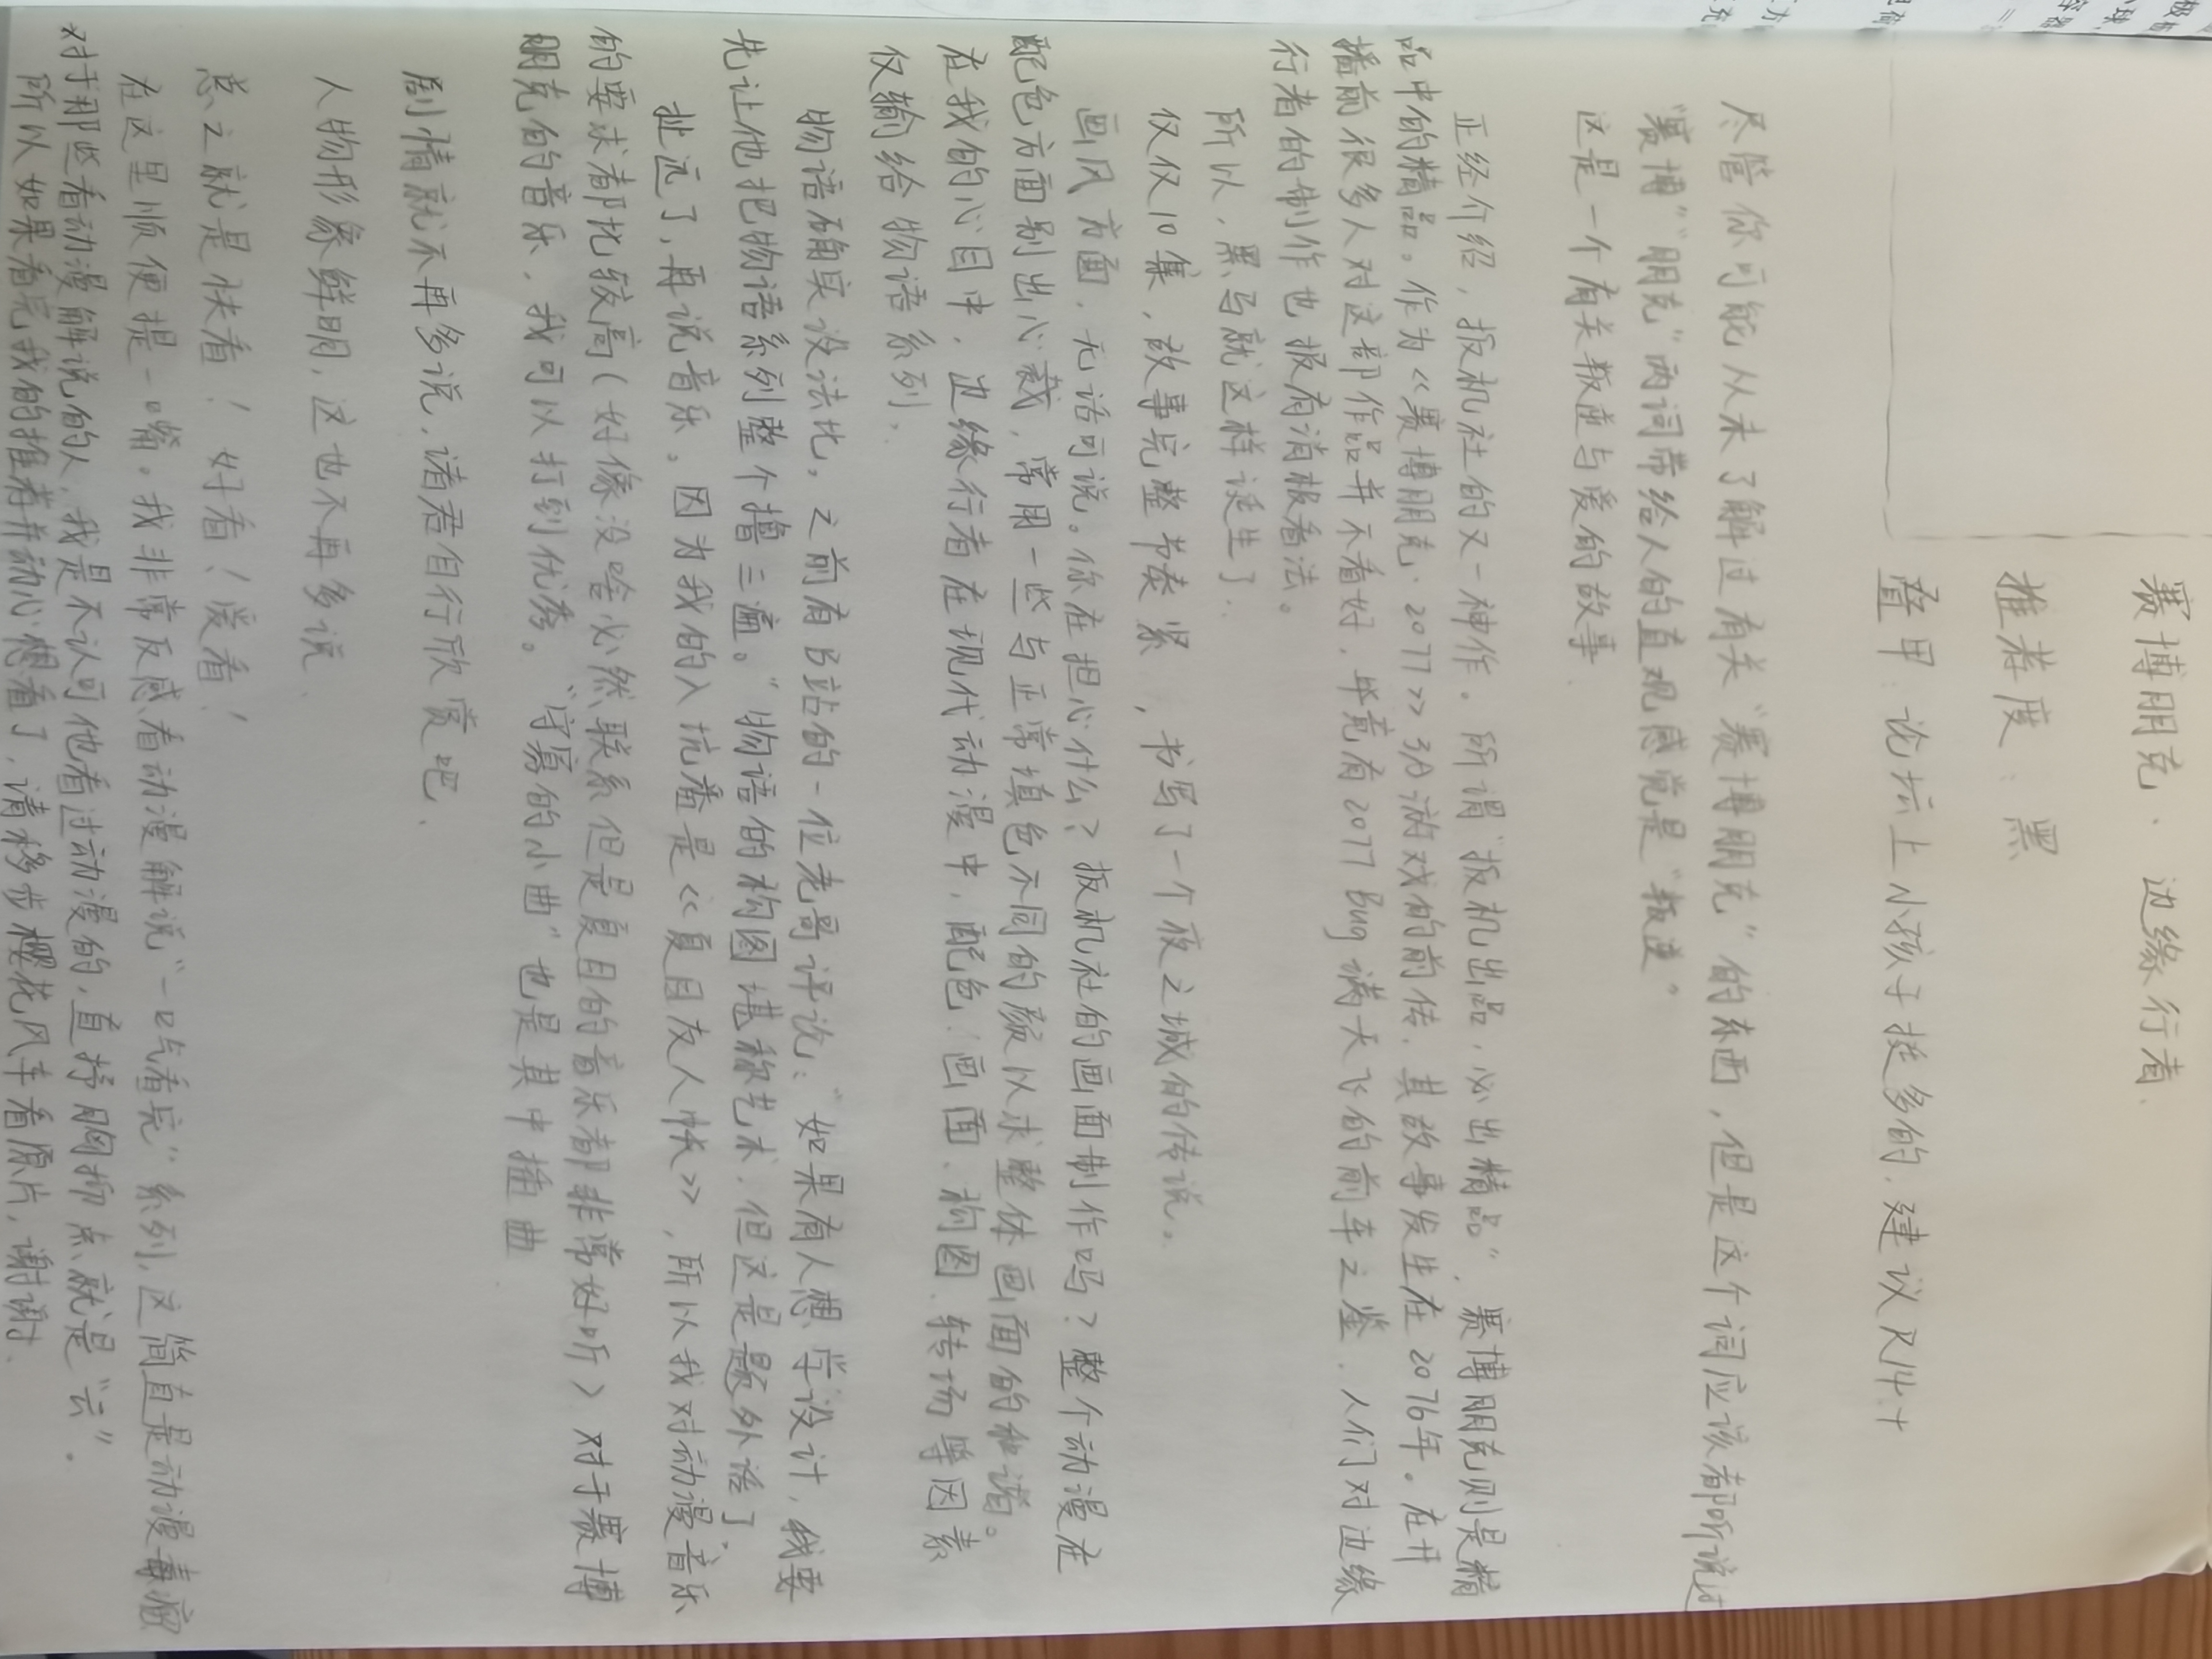 赛博朋克·边缘行者.
推荐度：黑
叠甲：论坛上小孩子挺多的，建议R14+
尽管你可能从未了解过有关“赛博朋克”的东西，但是这个词应该都听说过
“赛博”“朋克”两词带给人的直观感觉是“叛逆”
这是一个有关叛逆与爱的故事.
正经介绍，扳机社的又一神作。所谓“扳机出品，必出精品”，赛博朋克则是精
品中的精品。作为《赛博朋克：2077》3A游戏的前传，其故事发生在2076年。在开
播前很多人对这部作品并不看好，毕竟有2077 Bug满天飞的前车之鉴，人们对边缘
行者的制作也报有消极看法。
所以，黑马就这样诞生了.
仅仅10集，故事完整节奏紧，书写了一个夜之城的传说。
画风方面，无话可说。你在担心什么？扳机社的画面制作吗？整个动漫在
配色方面别出心裁，常用一些与正常填色不同的颜以求整体画面的和谐。
在我的心目中，边缘行者在现代动漫中，配色、画面、构图、转场等因素
仅输给物语系列.
物语确实没法比。之前有B站的一位老哥评说：“如果有人想学设计，我要
先让他把物语系列整个撸三遍。”物语的构图堪称艺术，但这是题外话了.
扯远了，再说音乐。因为我的入坑番是《夏目友人帐》，所以我对动漫音乐
的要求都比较高(好像没啥必然联系但是夏目的音乐都非常好听)对于赛博
朋克的音乐，我可以打到优秀。“守寡的小曲”也是其中插曲
剧情就不再多说，诸君自行欣赏吧.
人物形象鲜明，这也不再多说.
总之就是快看！好看！爱看！
在这里顺便提一嘴。我非常反感看动漫解说“一口气看完”系列，这简直是动漫毒瘤
对于那些看动漫解说的人，我是不认可他看过动漫的，直抒胸抑点就是“云”。
所以如果看完我的推荐并动心想看了，请移步樱花风车看原片，谢谢.